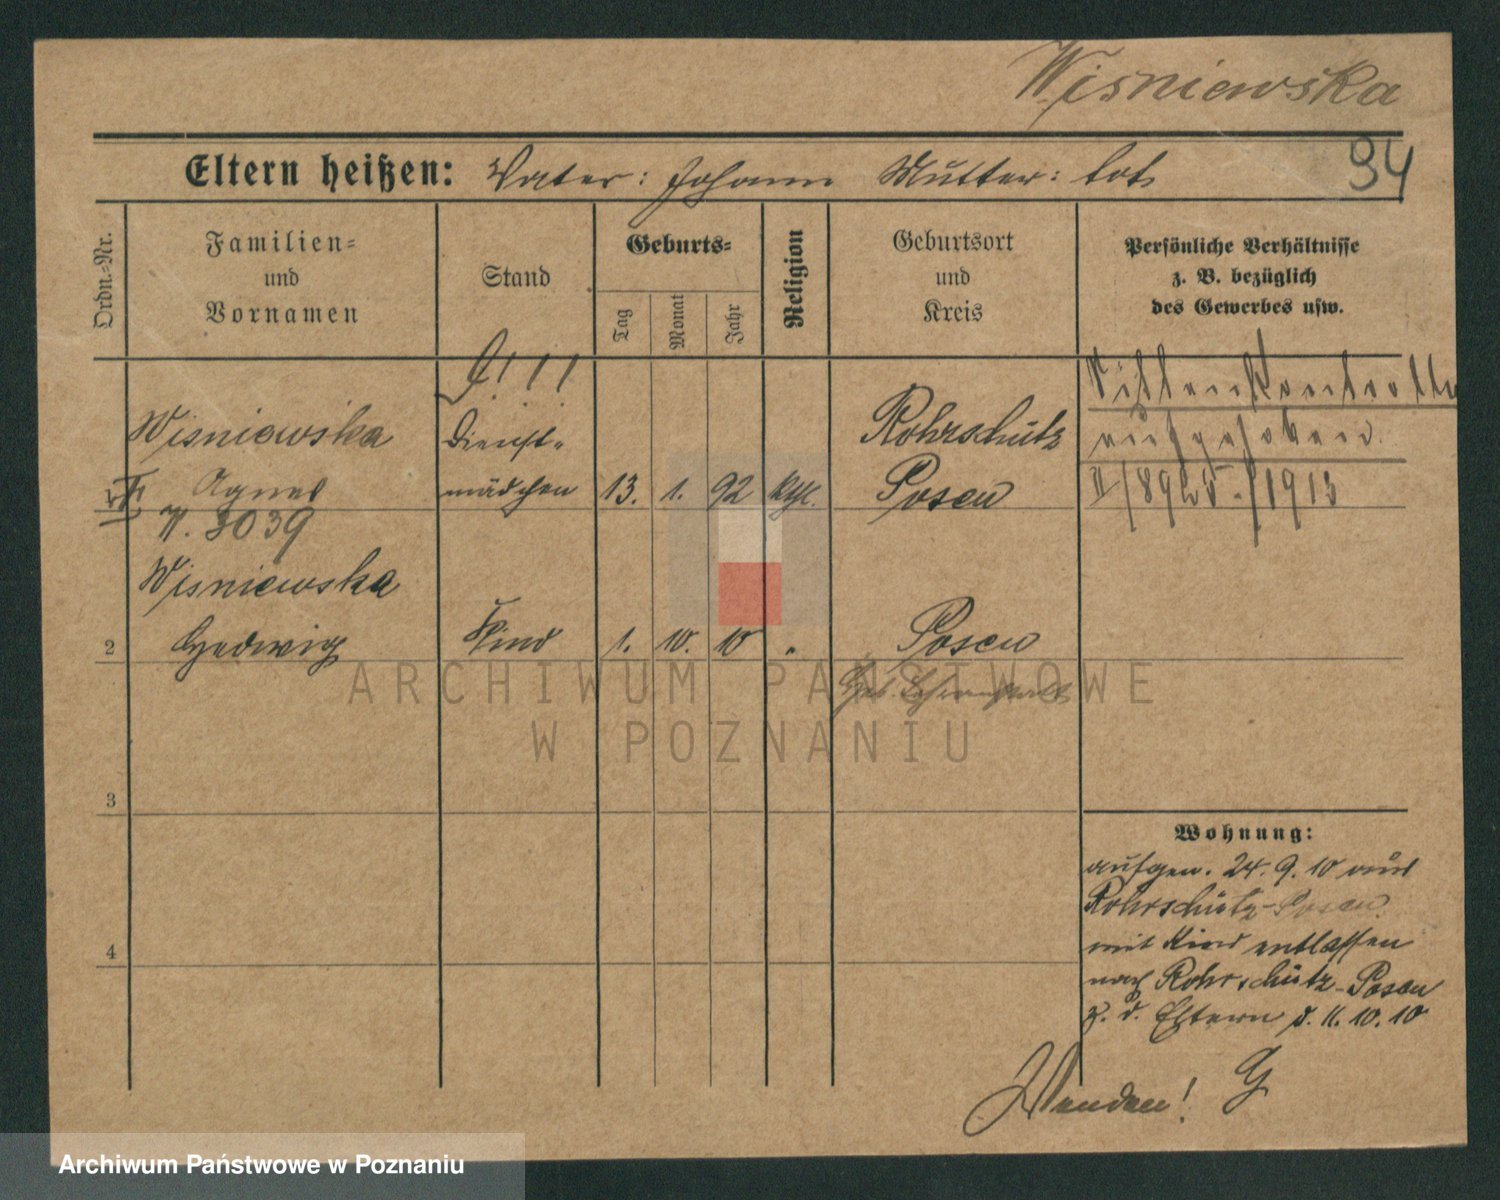 Wisniewska
94
Eltern heißen: Vater: Johann Mutter: tot
Ordn.-Nr.
Familien-
und
Vornamen
Stand
Geburts-
Tag
Monat
Jahr
Religion
Geburtsort
und
Kreis
Persönliche Verhältnisse
z. B. bezüglich
des Gewerbes usw.
Wisniewska
Agnes
Dienst-
mädchen
13. 1. 92 kth.
Rohrschütz
Posen
Sittenkontrolle
aufgehoben
II/8925-/1913
3039
2
Wisniewska
Hedwig
Kind
1. 10. 10
Posen
Geb. Lehranstalt
3
4
Wohnung:
aufgen. 24. 9. 10 aus
Rohrschütz-Posen
mit Kind entlassen
nach Rohrschütz-Posen
z. d. Eltern d. 11. 10. 10
Wenden!
ARCHIWUM PAŃSTWOWE
W POZNANIU
Archiwum Państwowe w Poznaniu